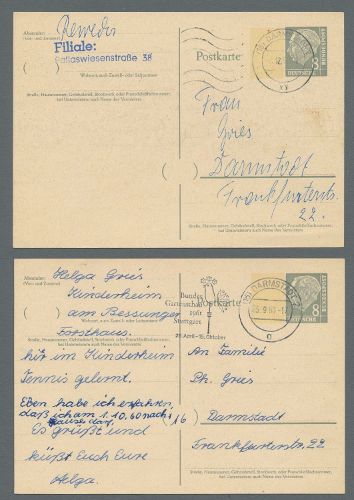 Absender:
Rewedes
Filiale:
Pallaswiesenstraße 38
Postkarte
8
DEUTSCHE
BUNDESPOST
Wohnort, auch Zustell- oder Leitpostamt
Straße, Hausnummer, Gebäudeteil, Stockwerk oder Postschließfachnummer,
bei Untermietern auch Name des Vermieters
Frau
Gries
Darmstadt
Frankfurterstr.
22.
Straße, Hausnummer, Gebäudeteil, Stockwerk oder Postschließfachnummer;
bei Untermietern auch Name des Vermieters
Absender:
(Vor- und Zuname)
Helga Gries
Kinderheim
am Bessunger
Forsthaus.
Wohnort, auch Zustell- oder Leitpostamt
Straße, Hausnummer, Gebäudeteil, Stockwerk oder Postschließfachnummer,
bei Untermietern auch Name des Vermieters
Bundes
Gartenschau
1961
Stuttgart
28. April - 15. Oktober
Postkarte
DARMSTADT
8
DEUTSCHE
BUNDESPOST
hir im Kinderheim
Tennis gelernt.
Eben habe ich erfahren,
daß ich am 1.10.60 nach
hause darf.
Es grüßt und
küßt Euch Eure
Helga.
An Familie
Ph. Gries
(16)
Darmstadt
Frankfurterstr. 22
Straße, Hausnummer, Gebäudeteil, Stockwerk oder Postschließfachnummer;
bei Untermietern auch Name des Vermieters